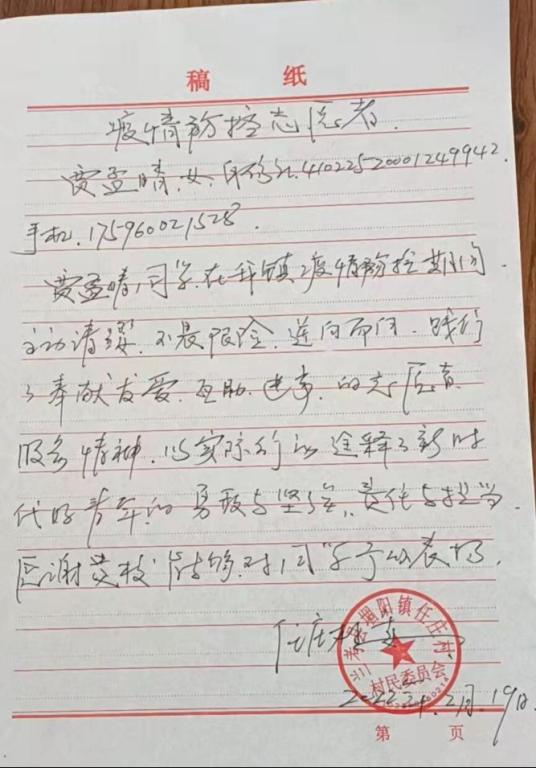 稿 纸
疫情防控志愿者.
贾孟晴,女,身份证,41022520001249942.
手机.175960021528.
贾孟晴,同学.在我镇疫情防控期间
主动请缨.不畏艰险.逆向而行.践行
了奉献友爱.互助.进步.的志愿者.
服务精神.以实际行动诠释了新时
代好青年的勇敢与坚强,责任与担当.
感谢贵校能够对同学予以表扬.
任庄村委
堌阳镇任庄村
村民委员会
2022年.2月.19日.
第 页